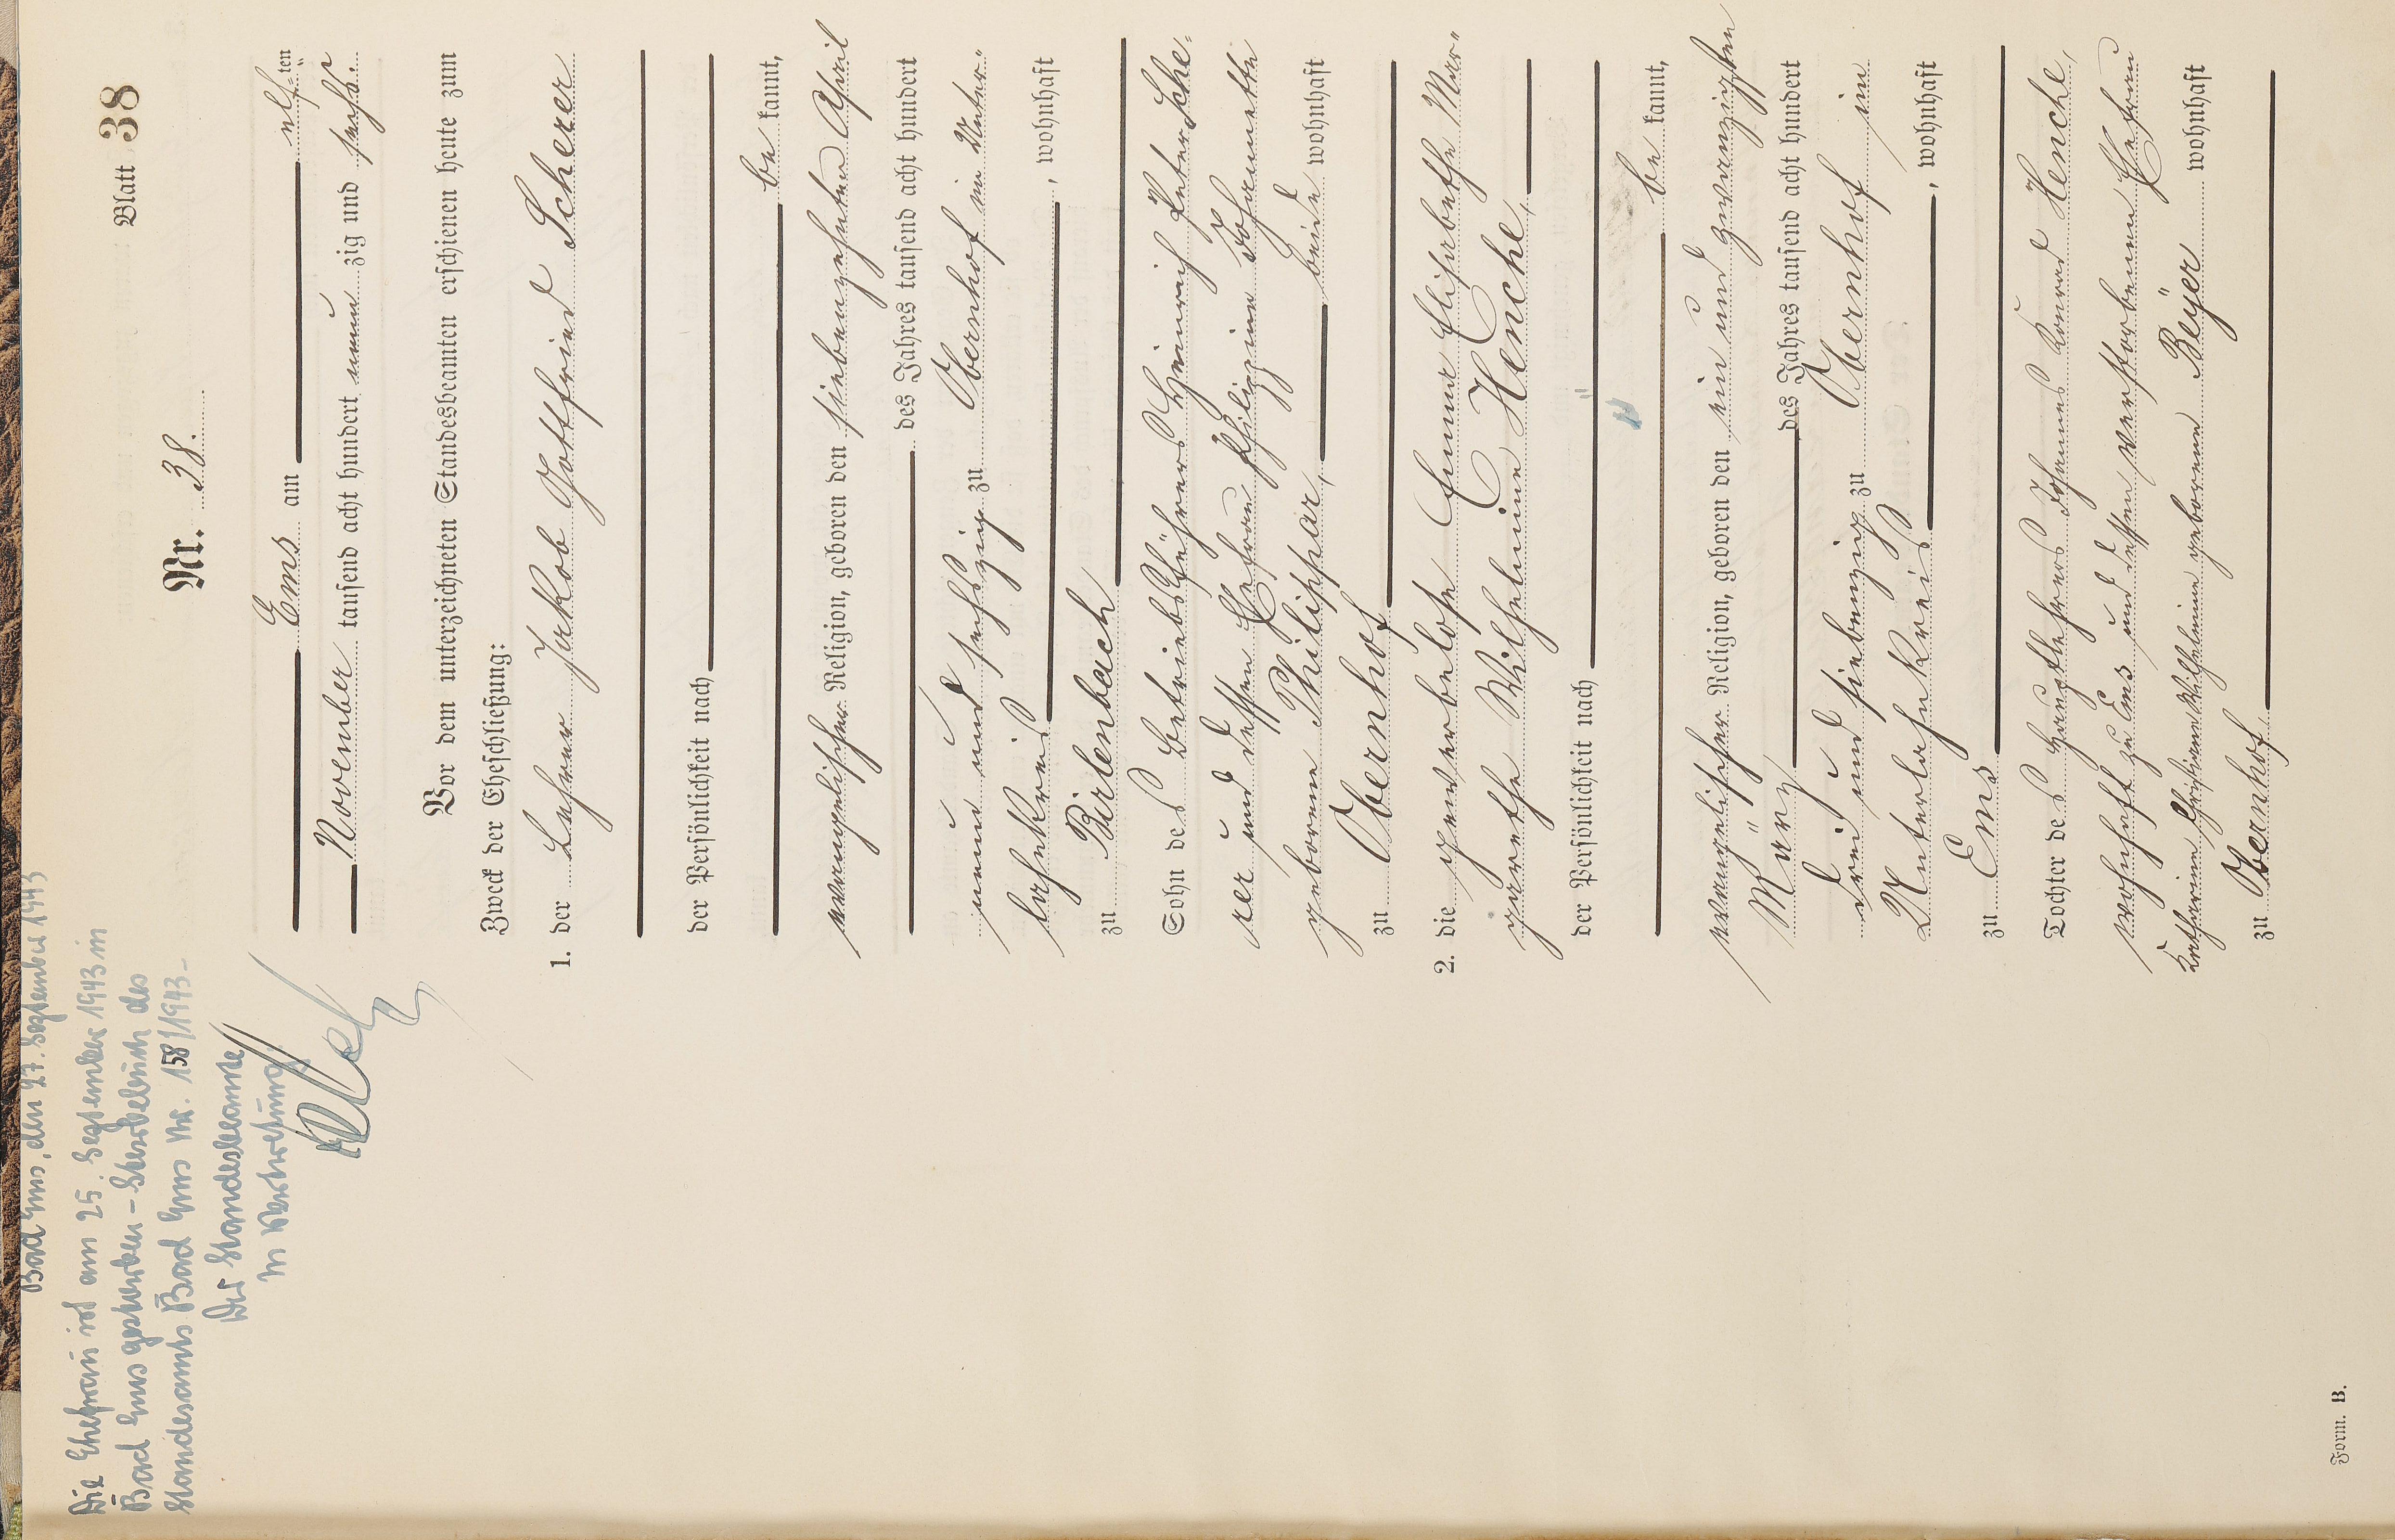 Blatt 38
Bad Ems, den 27. September 1943
Die Ehefrau ist am 25. September 1943 in
Bad Ems gestorben – Sterbebuch des
Standesamts Bad Ems Nr. 158/1943 –
Der Standesbeamte
In Vertretung
Nr. 38.
Ems am elf ten
November tausend acht hundert neun zig und sechs.
Vor dem unterzeichneten Standesbeamten erschienen heute zum
Zweck der Eheschließung:
1. der Lehrer Jakob Gottfried Scherer
der Persönlichkeit nach
be kannt,
evangelischer Religion, geboren den siebenzehnten April
des Jahres tausend acht hundert
neun und sechszig zu Obernhof im Unter-
lahnkreis, wohnhaft
zu Birlenbach
Sohn des Betriebsführers Heinrich Peter Sche-
rer und dessen Ehefrau Philippine Johannette
geborene Philippar, beide wohnhaft
zu Obernhof
2. die gewerbelose Emma Elisabethe Mar-
garethe Wilhelmine Henche,
der Persönlichkeit nach
be kannt,
evangelischer Religion, geboren den ein und zwanzigsten
März des Jahres tausend acht hundert
drei und siebenzig zu Obernhof im
Unterlahnkreis, wohnhaft
zu Ems
Tochter des Hauptlehrers Johannes Konrad Henche,
wohnhaft zu Ems und dessen verstorbenen Ehefrau
Katharine Christiane Wilhelmine geborene Beyer wohnhaft
zu Obernhof.
Form. B.